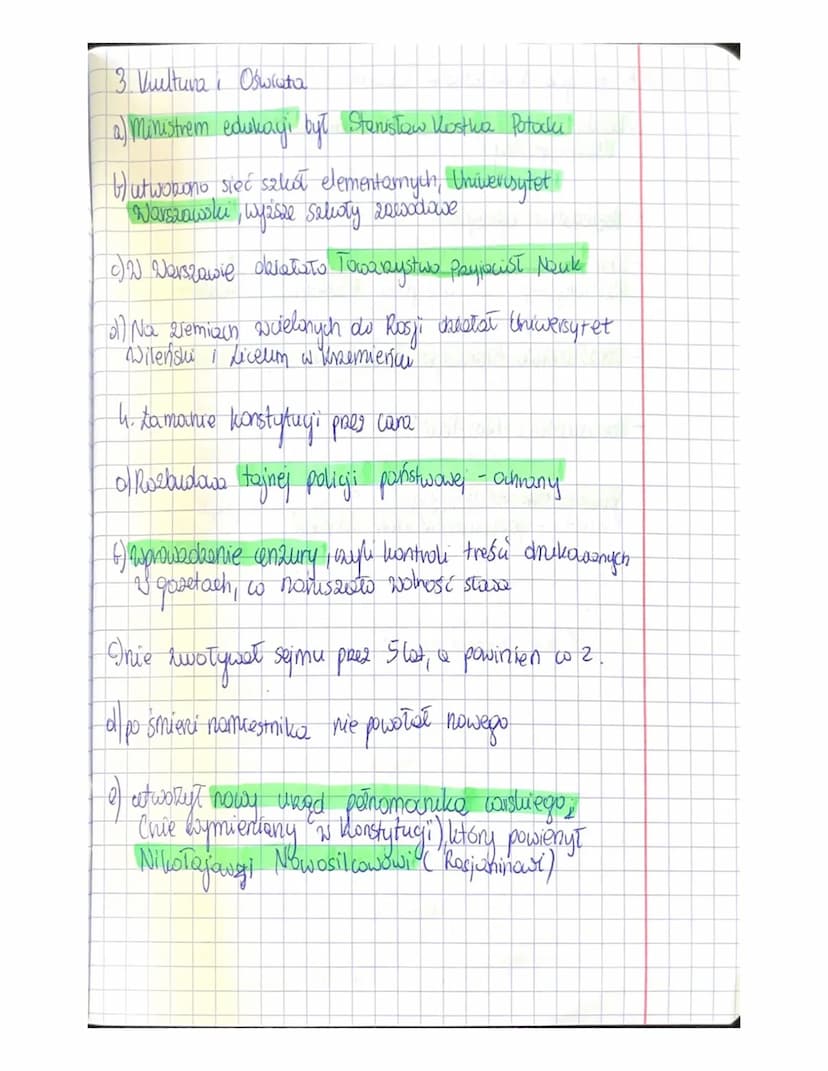 3. Kultura i Oświata
a) Ministrem edukacji był Stanisław Kostka Potocki
b) utworzono sieć szkół elementarnych, Uniwersytet
Warszawski, wyższe szkoły zawodowe
c) W Warszawie działało Towarzystwo Przyjaciół Nauk
d) Na ziemiach wcielonych do Rosji działał Uniwersytet
Wileński i Liceum w Krzemieńcu
4. Łamanie konstytucji przez cara
a) Rozbudowa tajnej policji państwowej - ochrany
b) wprowadzenie cenzury, czyli kontroli treści drukowanych
w gazetach, co naruszało wolność słowa
c) nie zwoływał sejmu przez 5 lat, a powinien co 2.
d) po śmierci namiestnika nie powołał nowego
e) utworzył nowy urząd pełnomocnika carskiego,
(nie wymieniany w Konstytucji), który powierzył
Nikołajowi Nowosilcowowi (Rosjaninowi)